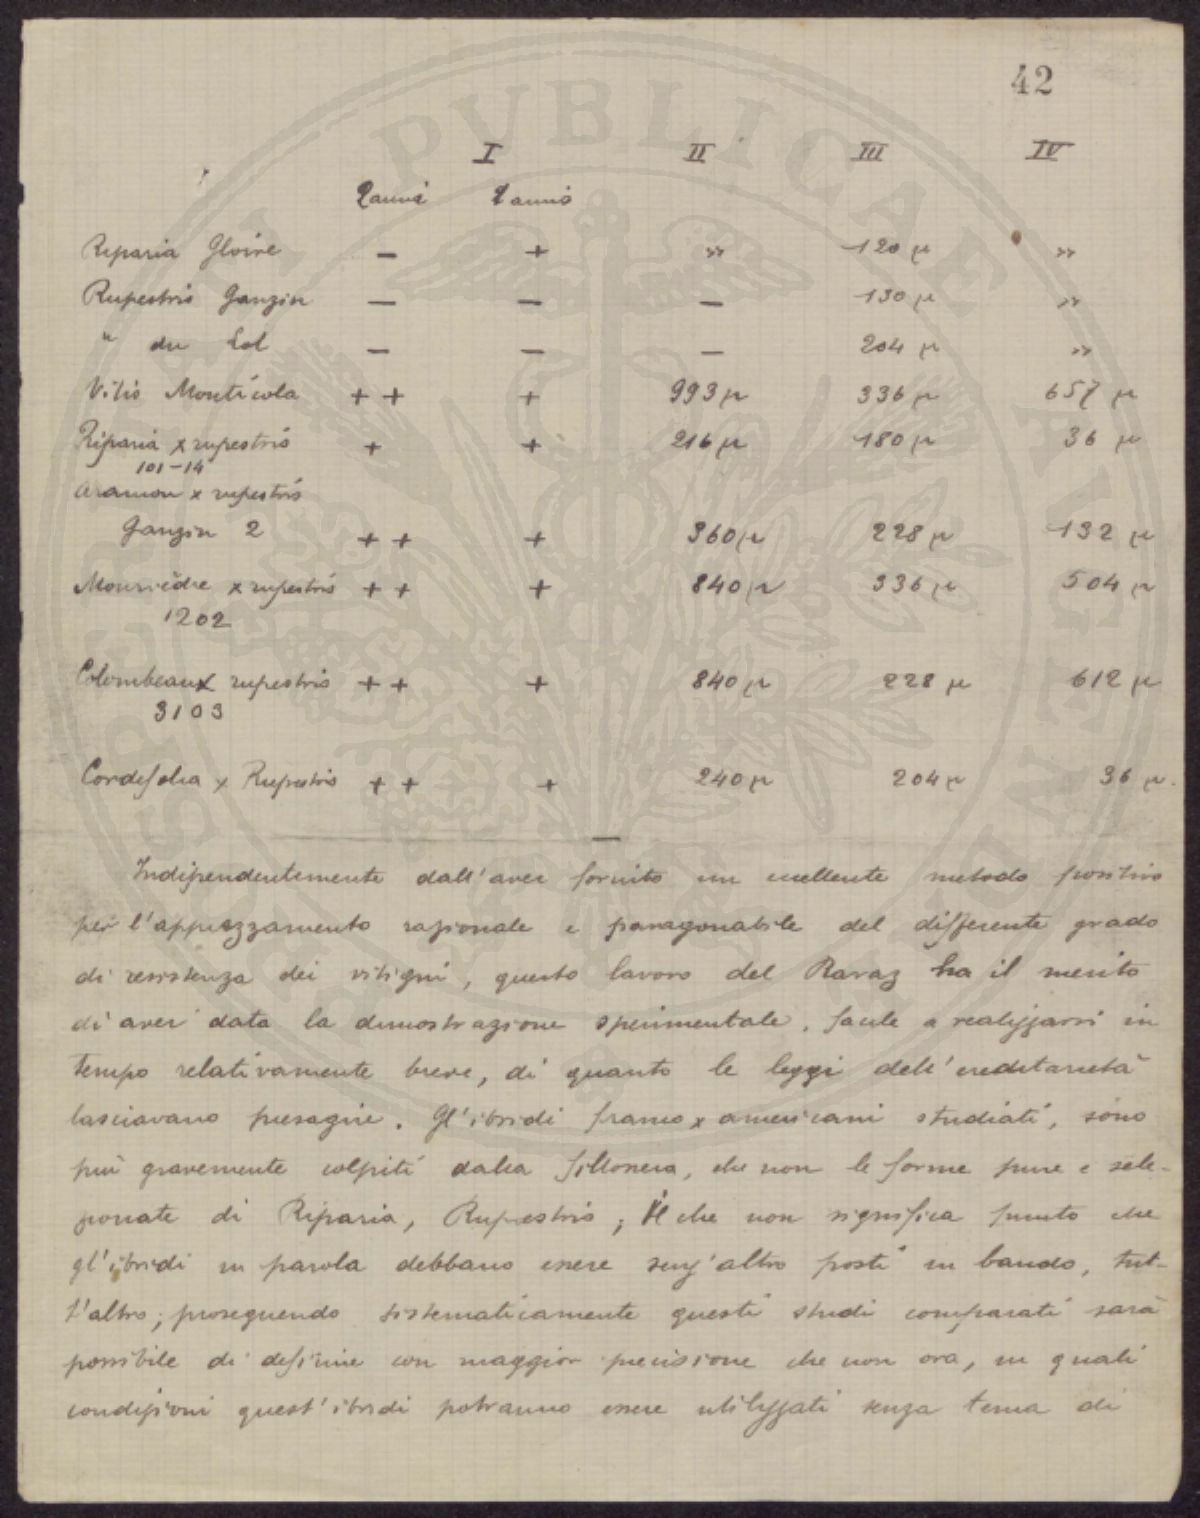 42
I II III IV
2 anni 1 anno
Riparia Gloire — + » 120 µ »
Rupestris Ganzin — — — 130 µ »
" du Lot — — — 204 µ »
Vitis Monticola + + + 993 µ 336 µ 657 µ
Riparia x rupestris + + 216 µ 180 µ 36 µ
101-14
Aramon x rupestris
Ganzin 2 + + + 360 µ 228 µ 132 µ
Mourvèdre x rupestris + + + 840 µ 336 µ 504 µ
1202
Colombeau x rupestris + + + 840 µ 228 µ 612 µ
3103
Cordifolia x Rupestris + + + 240 µ 204 µ 36 µ.
Indipendentemente dall'aver fornito un eccellente metodo positivo
per l'apprezzamento razionale e paragonabile del differente grado
di resistenza dei vitigni, questo lavoro del Ravaz ha il merito
di aver data la dimostrazione sperimentale, facile a realizzarsi in
tempo relativamente breve, di quanto le leggi dell'ereditarietà
lasciavano presagire. Gl'ibridi franco x americani studiati, sono
più gravemente colpiti dalla fillossera, che non le forme pure e sele-
zionate di Riparia, Rupestris; il che non significa punto che
gl'ibridi in parola debbano essere senz'altro posti in bando, tut-
t'altro; proseguendo sistematicamente questi studi comparati sarà
possibile di definire con maggior precisione che non ora, in quali
condizioni quest'ibridi potranno essere utilizzati senza tema di